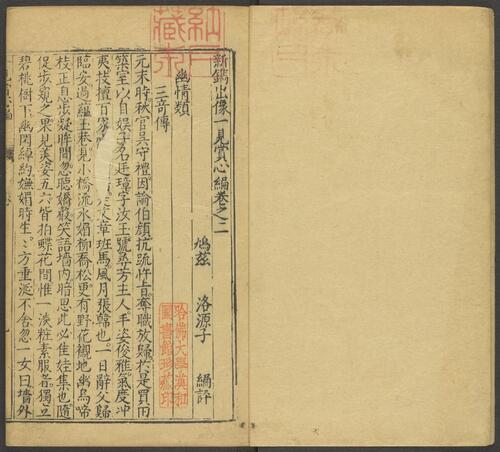 新鐫出像一見賞心編卷之二
鳩茲 洛源子 編評
幽情類
三奇傳
元末時秋官吳守禮因諭伯顔抗疏忤旨奪職放歸於是買
築室以自娱子名廷璋字汝玉號尋芳主人丰姿俊雅氣度冲
夷技擅百家 文章班馬風月張韓也一日辭父歸
臨安過 王巷見小橋流水媚柳喬松更有野花襯地幽鳥啼
枝正息步凝眸間忽聽嬌聲笑語墻内暗思此必佳娃集也隨
促步窺之果見美姿五六皆拍蝶花間惟一淡粧素服者獨立
碧桃樹下幽閑綽約嫵媚時生〻方垂涎不舍忽一女曰墻外
哈佛大學漢和圖書館珍藏印